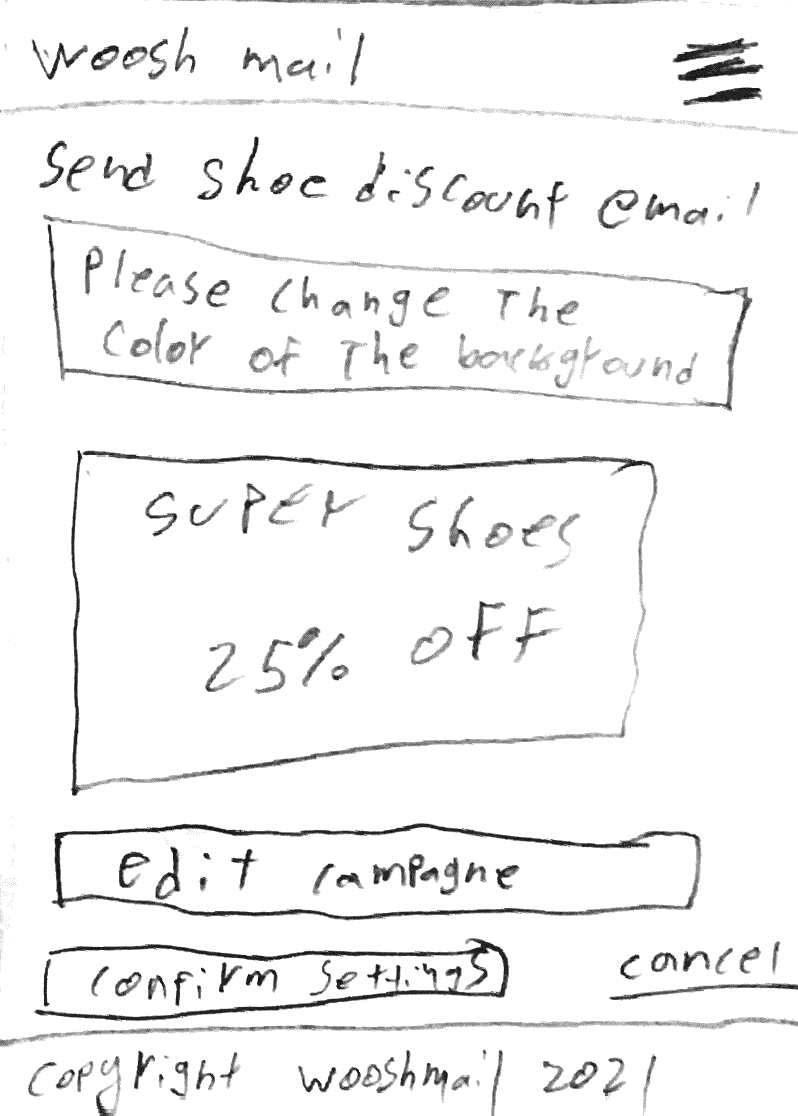 woosh mail
Send shoe discount email
Please change The
color of The background
SUPER Shoes
25% OFF
edit campagne
confirm settings
cancel
copyright wooshmail 2021